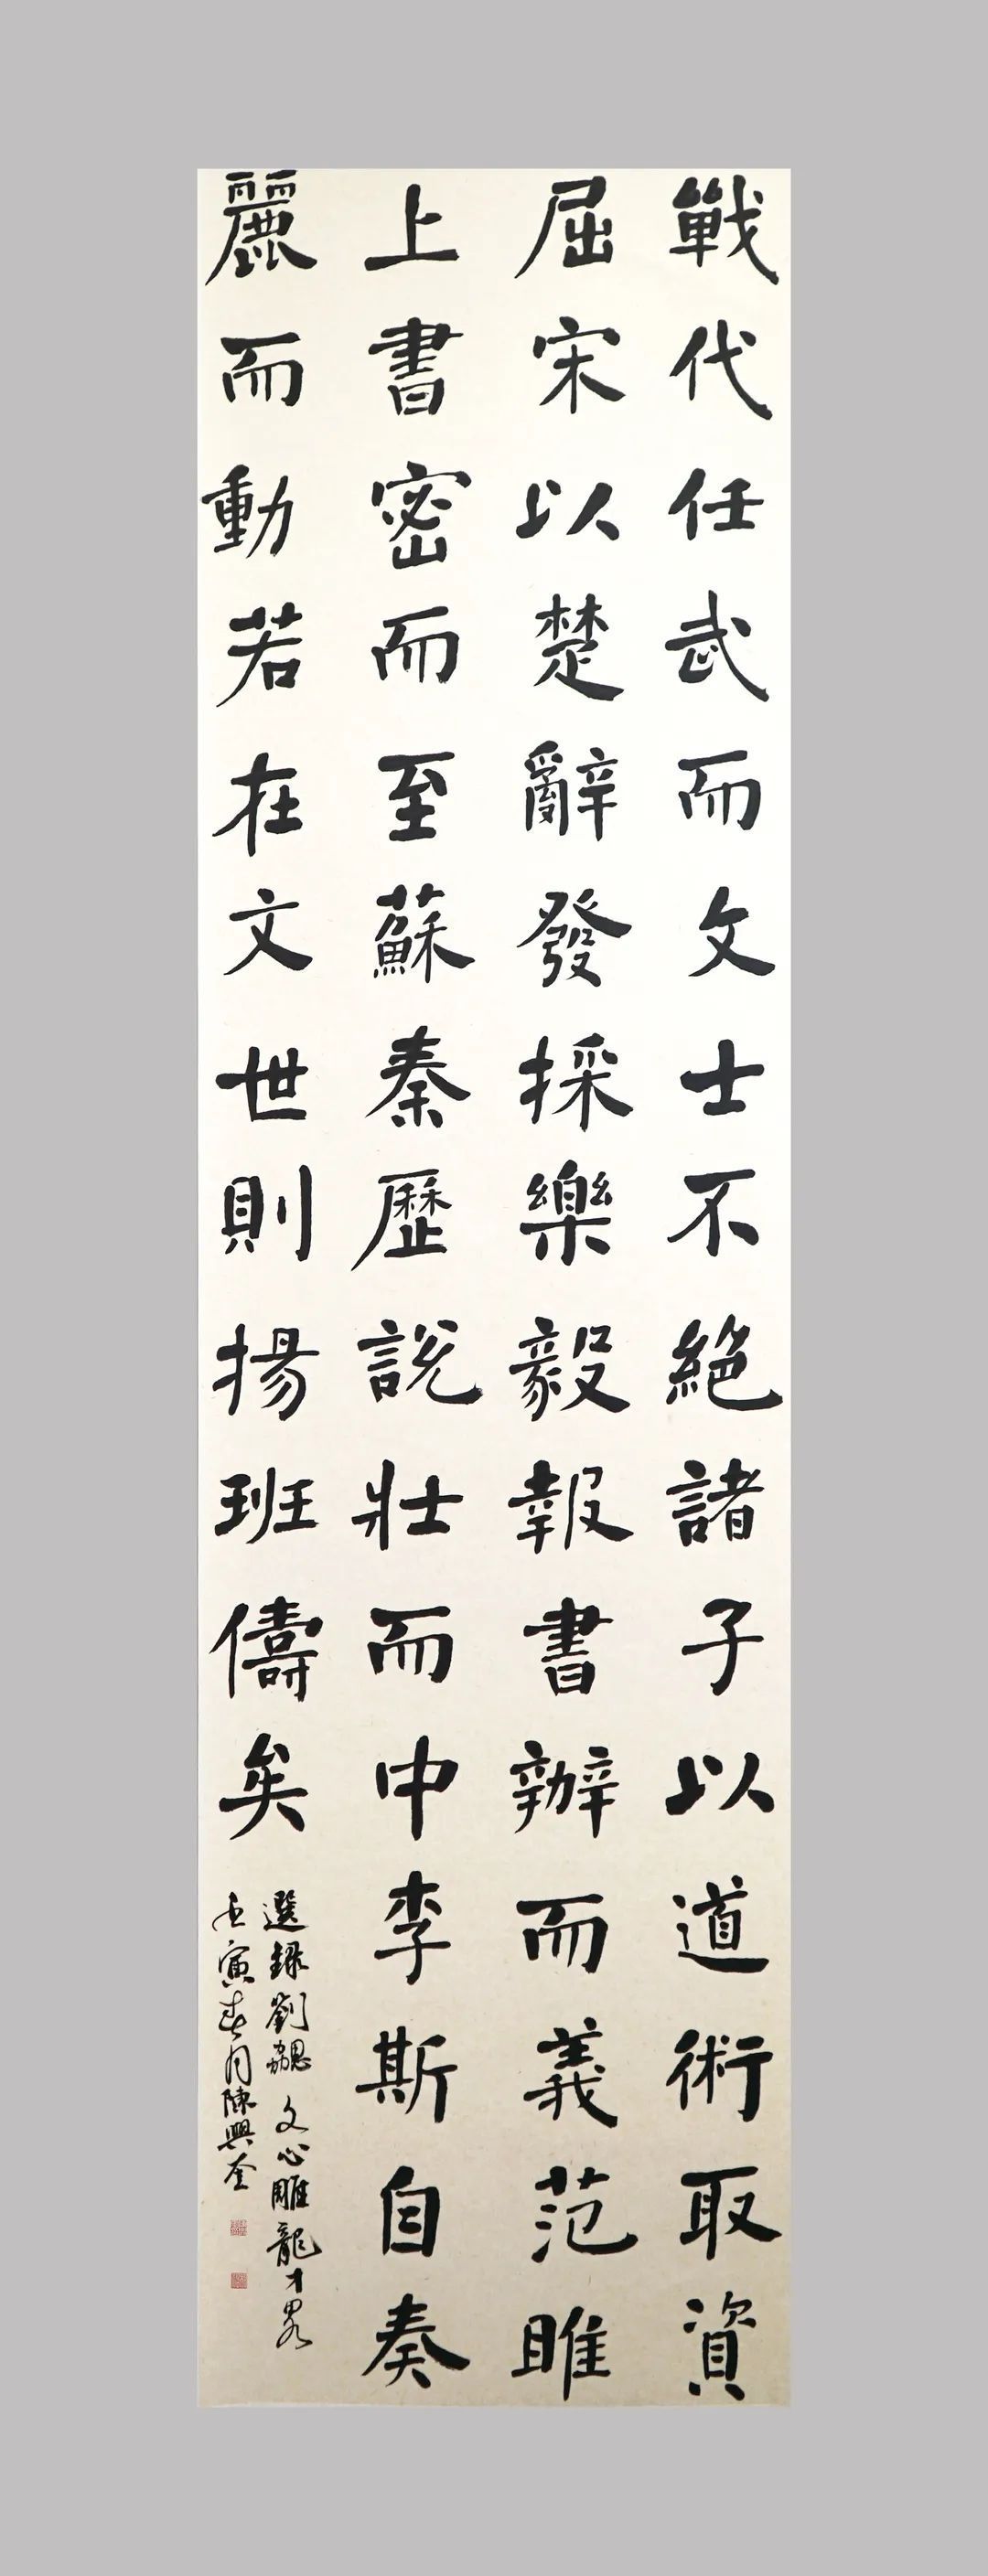 戰代任武而文士不絕諸子以道術取資
屈宋以楚辭發採樂毅報書辦而義范雎
上書密而至蘇秦歷說壯而中李斯自奏
麗而動若在文世則揚班儔矣
選錄劉勰文心雕龍才畧
壬寅春月陳興奎